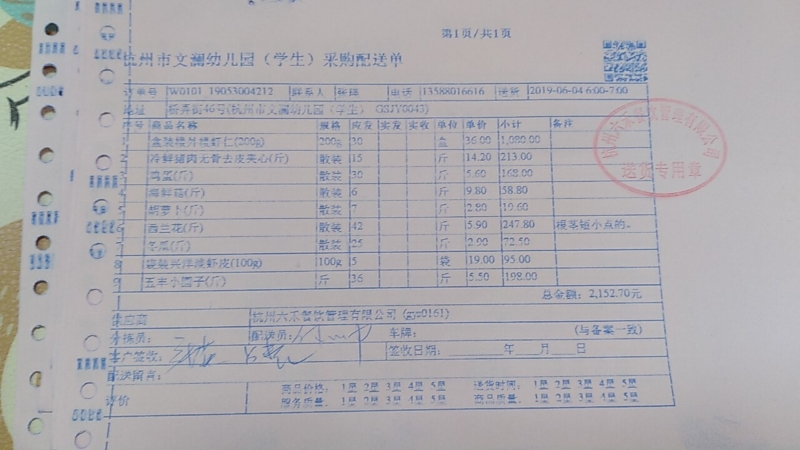 第1页/共1页
杭州市文澜幼儿园（学生）采购配送单
订单号 W0101 19053004212 联系人 张 电话 13588016616 送货 2019-06-04 6:00-7:00
地址 桥弄街46号(杭州市文澜幼儿园（学生） GSJY0043)
序号 商品名称 规格 应发 实发 实收 单位 单价 小计 备注
1 盒装楼外楼虾仁(200g) 200g 30 盒 36.00 1,080.00
2 冷鲜猪肉无骨去皮夹心(斤) 散装 15 斤 14.20 213.00
3 鸡蛋(斤) 散装 30 斤 5.60 168.00
4 海鲜菇(斤) 散装 6 斤 9.80 58.80
5 胡萝卜(斤) 散装 7 斤 2.80 19.60
6 西兰花(斤) 散装 42 斤 5.90 247.80 根茎短小点的。
7 冬瓜(斤) 散装 25 斤 2.90 72.50
8 袋装兴洋淡虾皮(100g) 100g 5 袋 19.00 95.00
9 五丰小圆子(斤) 斤 36 斤 5.50 198.00
总金额：2,152.70元
供应商 杭州六禾餐饮管理有限公司 (gyz0161)
分拣员： 配送员： 车牌： （与备案一致）
客户签收： 签收日期： 年 月 日
配送留言：
评价 商品价格： 1星 2星 3星 4星 5星 送货时间： 1星 2星 3星 4星 5星
服务质量： 1星 2星 3星 4星 5星 商品质量： 1星 2星 3星 4星 5星
杭州六禾餐饮管理有限公司
送货专用章